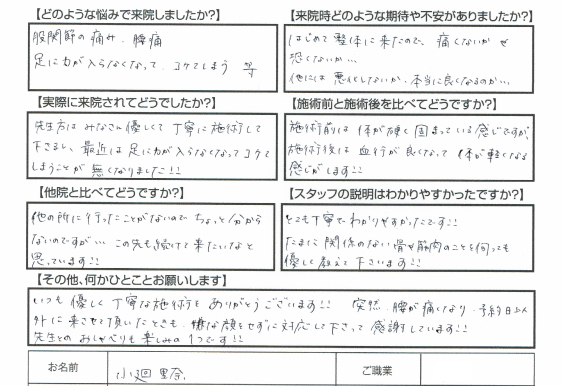 【どのような悩みで来院しましたか?】
股関節の痛み、腰痛
足に力が入らなくなって、コケてしまう 等
【来院時どのような期待や不安がありましたか?】
はじめて整体に来たので、痛くないか
恐くないか…
他には悪化しないか、本当に良くなるのか…
【実際に来院されてどうでしたか?】
先生方はみなさん優しくて丁寧に施術して
下さるし、最近は足に力が入らなくなってコケて
しまうことが無くなりました!!
【施術前と施術後を比べてどうですか?】
施術前は体が硬く固まっている感じですが、
施術後は血行が良くなって体が軽くなる
感じがします!!
【他院と比べてどうですか?】
他の所に行ったことがないのでちょっと分から
ないのですが… この先も続けて来たいなと
思っています!!
【スタッフの説明はわかりやすかったですか?】
とても丁寧でわかりやすかったです!!
たまに関係のない骨や筋肉のことを伺っても
優しく教えて下さいます!!
【その他、何かひとことお願いします】
いつも優しく丁寧な施術をありがとうございます!! 突然、腰が痛くなり、予約日以
外に来させて頂いたときも、嫌な顔をせずに対応して下さって感謝しています!!
先生とのおしゃべりも楽しみの1つです!!
お名前
小廻 里奈
ご職業